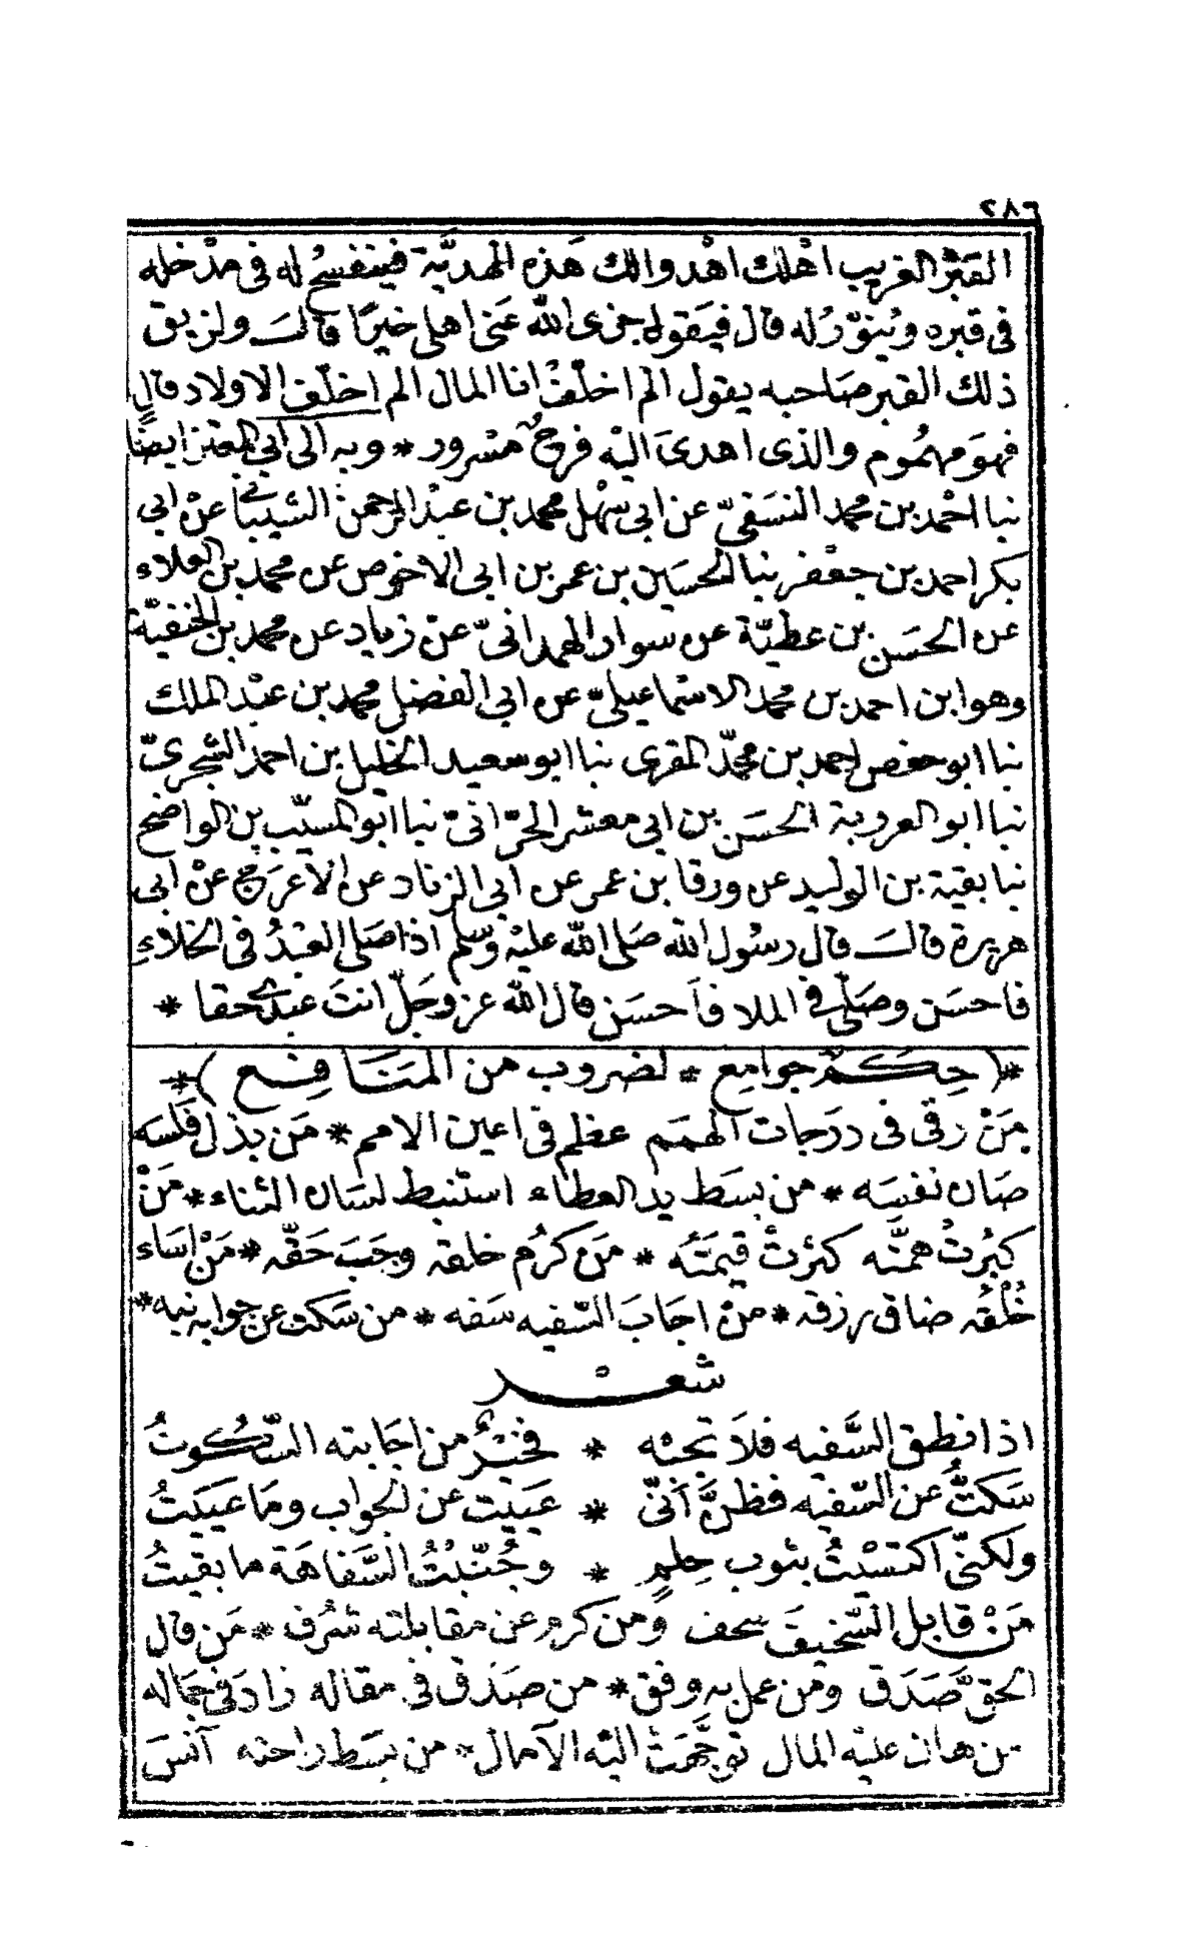 ٢٨٦
القَبْرُ الغريب اهْلك اهْدوا لك هَذه الهديَّة فينفسحُ له في مدْخله
في قبره ويُنوّرُ له قال فيَقول جزى الله عَني اهلى خيرًا قالَـ ولزيق
ذلك القبر صَاحبه يقول الم اخلّفْ انا المال الم اخلّف الاولاد قال
فهوَ مهمُوم والذى اهدىَ اليْه فرحٌ مَسْرور * وبه الى ابي المعتز ايضًا
نبا احْمد بن محمد النسَفيّ عن ابى سَهْل محمد بن عبْد الرحمن الشيبَاني عنْ ابى
بكر احمد بن جعْفر نبا الحسَين بن عمر بن ابى الاخوص عن محمد بن العلاء
عن الحسَن بن عطيّة عن سوار الهمدانىّ عنْ زياد عن محمد بن الحنفيّة
وهو ابن احمد بن محمد الاسْماعيلىّ عن ابى الفضل محمد بن عبْد الملك
نبا ابو حفص احمد بن محمّد المقرى نبا ابو سعيد الخليل بن احمد الشجرىّ
نبا ابو العروبة الحسَن بن ابى معشر الحرّانىّ نبا ابو المسيّب بن الواضح
نبا بقية بن الوليد عن ورقا بن عمر عن ابى الزناد عن الاعرَج عنْ ابى
هريرة قالَـ قال رسُول الله صَلى الله عليْه وَسلم اذا صَلى العَبْدُ في الخلاءِ
فاحسَن وصَلّى في الملا فاَحسَن قال الله عز وجَلّ انتَ عبدى حقا *
*( حِكَمٌ جوَامِع * لضروب من المَنَافِع )*
مَنْ رقى فى درَجات الهمَم عظم فى اعين الامم * مَن بذل فَلسَه
صَان نفسَه * من بسَط يد العطاء استنبط لسَان الثناء * مَنْ
كبُرتْ همَّته كثرتْ قيمَتُه * مَن كرُم خلقه وجَبَ حَقّه * مَنْ اسَاء
خُلْقُه ضاق رزقه * منْ اجَابَ السّفيه سَفه * من سَكت عن جوابه نبه *
شعْـر
اذا نطق السَّفيه فلاَ تجبْه * فخيْرٌ من اجَابته السّكُوتُ
سَكتُّ عن السّفيْه فظنَّ أنّى * عَييت عن الجواب ومَا عَييتُ
ولكنّى اكتسْيتُ بثوب حِلمٍ * وجُنّبْتُ السَّفاهَة ما بقيتُ
مَنْ قابل السّخيفَ سخف ومن كرم عن مقابلته شرُف * مَن قال
الحقَّ صَدَق ومَن عمل به وفق * من صَدَق في مقاله زادَ في جمَاله
من هان عليْه المال توجَّهَتْ اليْه الآمال * من بسَط راحته آنسَ